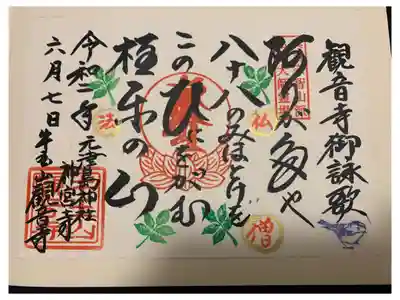 観音寺御詠歌
阿りが多や
八十八のみほとけを
このひにをがむ
極楽の山
元津島神社
神宮寺
牛玉山観音寺
令和二年
六月七日
仏
法
僧